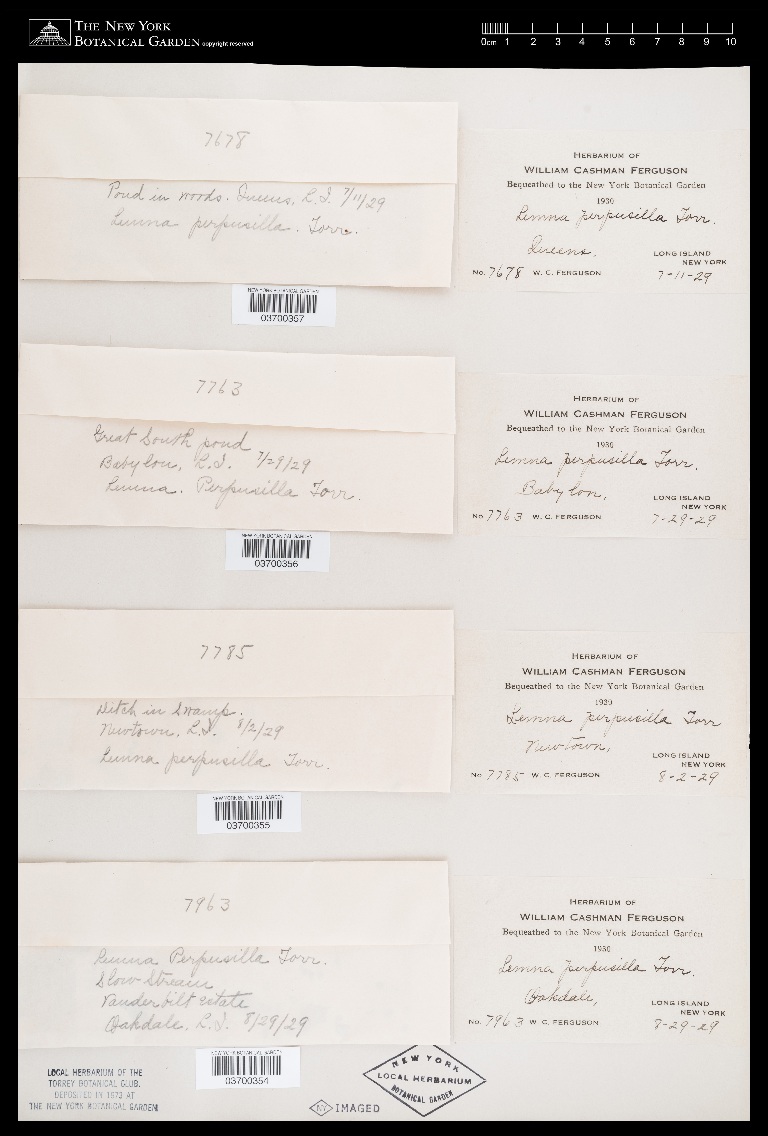 THE NEW YORK
BOTANICAL GARDEN copyright reserved
0cm 1 2 3 4 5 6 7 8 9 10
7678
Pond in woods. Queens, L.I. 7/11/29
Lemna perpusilla. Torr.
NEW YORK BOTANICAL GARDEN
03700357
HERBARIUM OF
WILLIAM CASHMAN FERGUSON
Bequeathed to the New York Botanical Garden
1930
Lemna perpusilla Torr.
Queens,
LONG ISLAND
NEW YORK
No. 7678 W. C. FERGUSON 7-11-29
7763
Great South pond
Babylon, L.I. 7/29/29
Lemna. Perpusilla Torr.
NEW YORK BOTANICAL GARDEN
03700356
HERBARIUM OF
WILLIAM CASHMAN FERGUSON
Bequeathed to the New York Botanical Garden
1930
Lemna perpusilla Torr.
Babylon,
LONG ISLAND
NEW YORK
No. 7763 W. C. FERGUSON 7-29-29
7785
Ditch in Swamp.
Newtown, L.I. 8/2/29
Lemna perpusilla Torr.
NEW YORK BOTANICAL GARDEN
03700355
HERBARIUM OF
WILLIAM CASHMAN FERGUSON
Bequeathed to the New York Botanical Garden
1930
Lemna perpusilla Torr
Newtown,
LONG ISLAND
NEW YORK
No. 7785 W. C. FERGUSON 8-2-29
7963
Lemna Perpusilla Torr.
Slow Stream
Vanderbilt estate
Oakdale, L.I. 8/29/29
NEW YORK BOTANICAL GARDEN
03700354
HERBARIUM OF
WILLIAM CASHMAN FERGUSON
Bequeathed to the New York Botanical Garden
1930
Lemna perpusilla Torr.
Oakdale,
LONG ISLAND
NEW YORK
No. 7963 W. C. FERGUSON 8-29-29
LOCAL HERBARIUM OF THE
TORREY BOTANICAL CLUB.
DEPOSITED IN 1973 AT
THE NEW YORK BOTANICAL GARDEN
NY IMAGED
NEW YORK
LOCAL HERBARIUM
BOTANICAL GARDEN